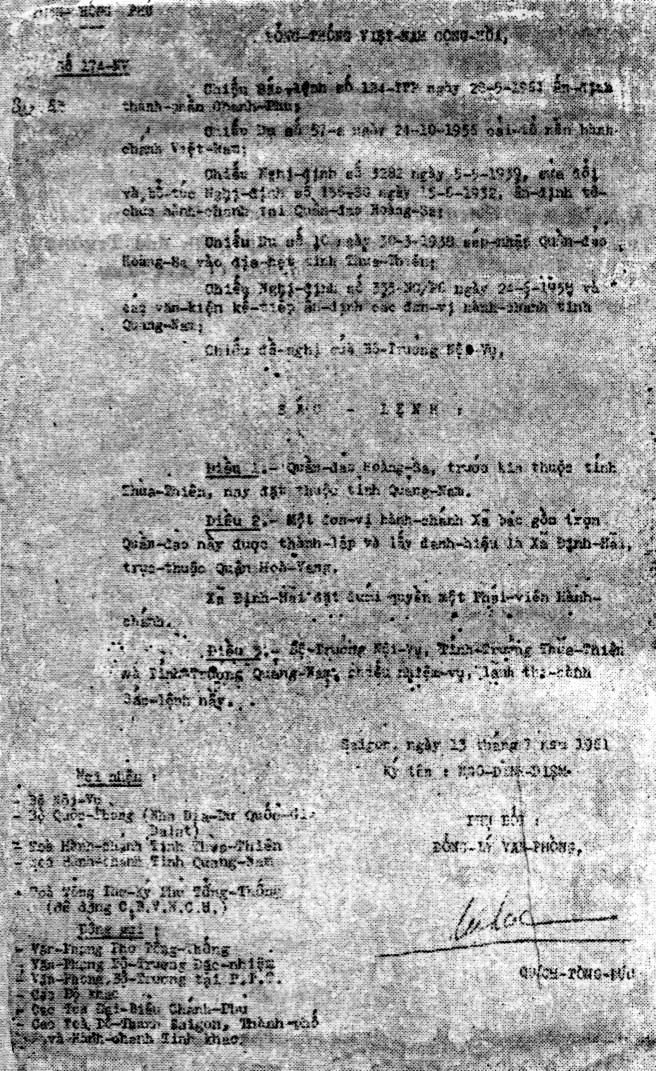 HỒNG PHÚ
TỔNG-THỐNG VIỆT-NAM CỘNG-HÒA,
Số 174-NV
Chiếu Sắc-lệnh số 124-TTP ngày 28-5-1961 ấn-định
thành-phần Chánh-Phủ;
Chiếu Dụ số 57-a ngày 24-10-1956 cải-tổ nền hành-
chánh Việt-Nam;
Chiếu Nghị-định số 3282 ngày 5-5-1939, sửa đổi
và bổ-túc Nghị-định số 156-SC ngày 15-6-1932, ấn-định tổ-
chức hành-chánh tại Quần-đảo Hoàng-Sa;
Chiếu Dụ số 10 ngày 30-3-1938 sáp-nhập Quần-đảo
Hoàng-Sa vào địa-hạt tỉnh Thừa-Thiên;
Chiếu Nghị-định số 335-NV/PC ngày 24-6-1958 và
các văn-kiện kế-tiếp ấn-định các đơn-vị hành-chánh tỉnh
Quảng-Nam;
Chiếu đề-nghị của Bộ-Trưởng Nội-Vụ,
SẮC - LỆNH :
Điều 1.- Quần-đảo Hoàng-Sa, trước kia thuộc tỉnh
Thừa-Thiên, nay đặt thuộc tỉnh Quảng-Nam.
Điều 2.- Một đơn-vị hành-chánh Xã bao gồm trọn
Quần-đảo này được thành-lập và lấy danh-hiệu là Xã Định-Hải,
trực-thuộc Quận Hoà-Vang.
Xã Định-Hải đặt dưới quyền một Phái-viên Hành-
chánh.
Điều 3.- Bộ-Trưởng Nội-Vụ, Tỉnh-Trưởng Thừa-Thiên
và Tỉnh-Trưởng Quảng-Nam, chiếu nhiệm-vụ, lãnh thi-hành
Sắc-lệnh nầy.
Saigon, ngày 13 tháng 7 năm 1961
Ký tên : NGÔ-ĐÌNH-DIỆM
Nơi nhận :
- Bộ Nội-Vụ
- Bộ Quốc-Phòng (Nha Địa-Dư Quốc-Gia
Dalat)
- Toà Hành-chánh Tỉnh Thừa-Thiên
- Toà Hành-chánh Tỉnh Quảng-Nam
- Toà Tổng Thư-Ký Phủ Tổng-Thống
(để đăng C.B.V.N.C.H.)
PHỤ BỔI :
ĐỔNG-LÝ VĂN-PHÒNG,
Đồng gửi :
- Văn-Phòng Phó Tổng-Thống
- Văn-Phòng Bộ-Trưởng Đặc-nhiệm
- Văn-Phòng Bộ-Trưởng tại P.T.T.
- Các Bộ khác
- Các Toà Đại-Biểu Chánh-Phủ
- Các Toà Đô-Thành Saigon, Thành-phố
và Hành-chánh Tỉnh khác.
QUÁCH-TÒNG-ĐỨC